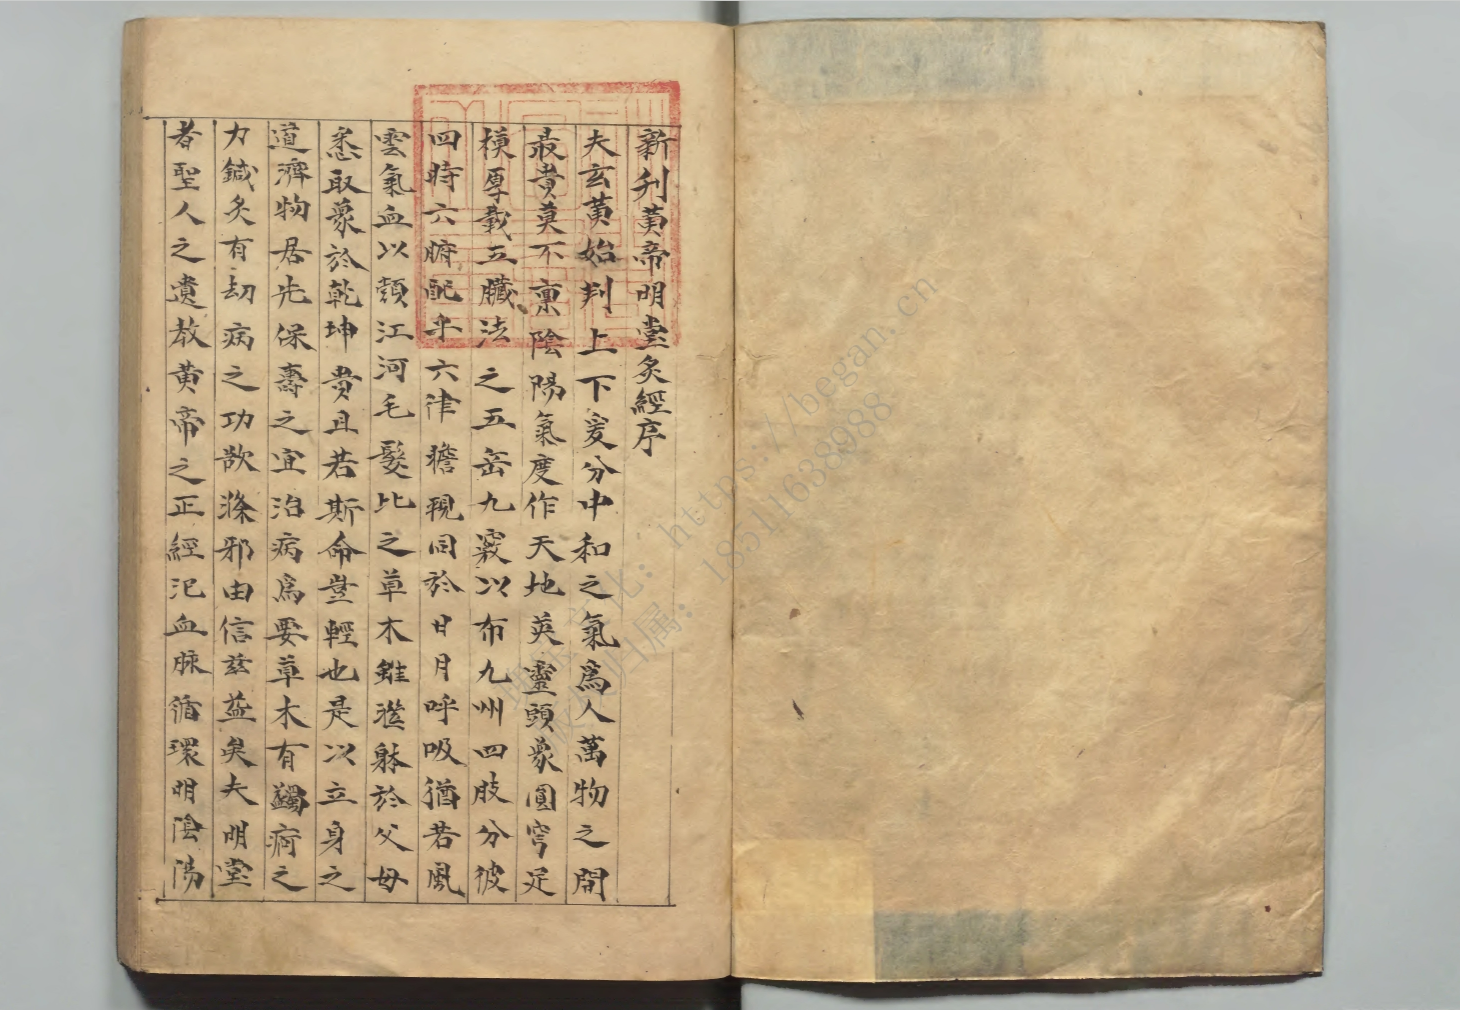 新刋黄帝明堂炙經序
夫玄黄始判上下爰分中和之氣爲人萬物之間
最貴莫不禀陰陽氣度作天地英靈頭象圓穹足
模厚載五臓法之五岳九竅以布九州四肢分彼
四時六腑配乎六律瞻視同於日月呼吸猶若風
雲氣血以類江河毛髮比之草木雖濫躰於父母
悉取象於乾坤貴且若斯命豈輕也是以立身之
道濟物居先保壽之宜治病爲要草木有蠲痾之
力鍼炙有劫病之功欲滌邪由信兹益矣夫明堂
者聖人之遺教黄帝之正經汜血脉循環明陰陽
https://began.cn
18511638988